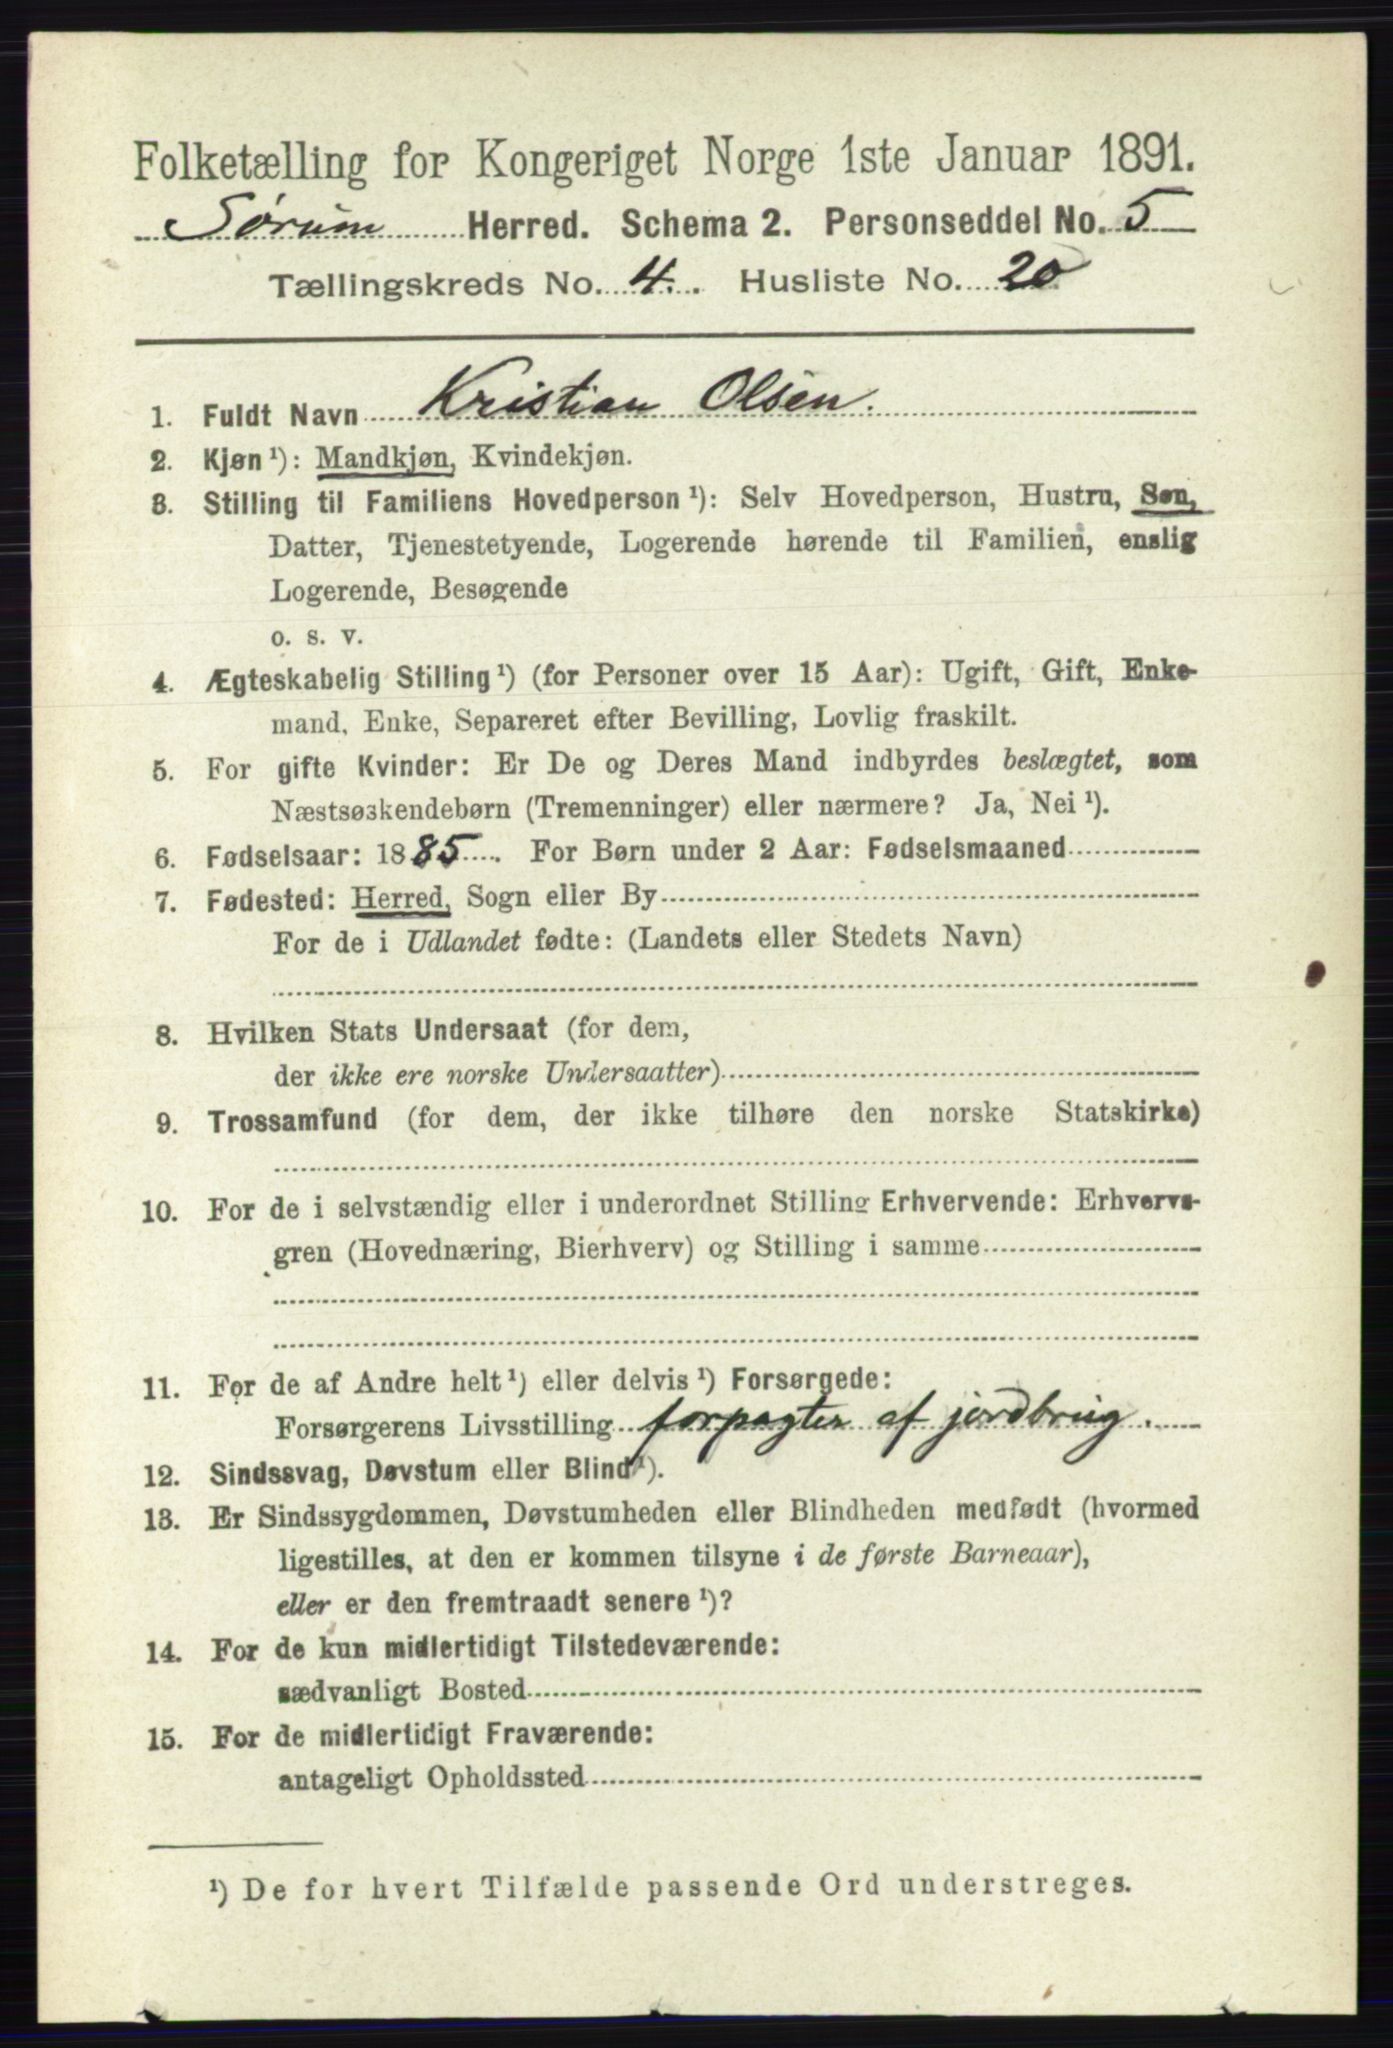 Folketælling for Kongeriget Norge 1ste Januar 1891.
Sørum Herred. Schema 2. Personseddel No. 5
Tællingskreds No. 4. Husliste No. 20
1. Fuldt Navn Kristian Olsen.
2. Kjøn ¹): Mandkjøn, Kvindekjøn.
3. Stilling til Familiens Hovedperson ¹): Selv Hovedperson, Hustru, Søn,
Datter, Tjenestetyende, Logerende hørende til Familien, enslig
Logerende, Besøgende
o. s. v.
4. Ægteskabelig Stilling ¹) (for Personer over 15 Aar): Ugift, Gift, Enke-
mand, Enke, Separeret efter Bevilling, Lovlig fraskilt.
5. For gifte Kvinder: Er De og Deres Mand indbyrdes beslægtet, som
Næstsøskendebørn (Tremenninger) eller nærmere? Ja, Nei ¹).
6. Fødselsaar: 1885. For Børn under 2 Aar: Fødselsmaaned
7. Fødested: Herred, Sogn eller By
For de i Udlandet fødte: (Landets eller Stedets Navn)
8. Hvilken Stats Undersaat (for dem,
der ikke ere norske Undersaatter)
9. Trossamfund (for dem, der ikke tilhøre den norske Statskirke)
10. For de i selvstændig eller i underordnet Stilling Erhvervende: Erhvervs-
gren (Hovednæring, Bierhverv) og Stilling i samme
11. For de af Andre helt ¹) eller delvis ¹) Forsørgede:
Forsørgerens Livsstilling forpagter af jordbrug.
12. Sindssvag, Døvstum eller Blind ¹).
13. Er Sindssygdommen, Døvstumheden eller Blindheden medfødt (hvormed
ligestilles, at den er kommen tilsyne i de første Barneaar),
eller er den fremtraadt senere ¹)?
14. For de kun midlertidigt Tilstedeværende:
sædvanligt Bosted
15. For de midlertidigt Fraværende:
antageligt Opholdssted
¹) De for hvert Tilfælde passende Ord understreges.